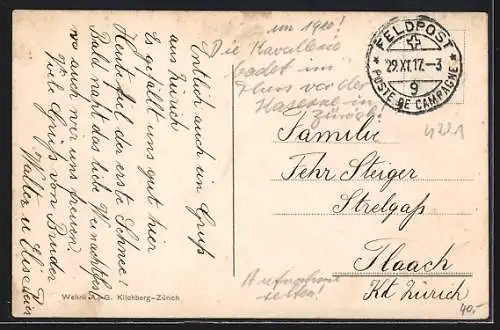 um 1910!
Die Kavallerie
badet im
Fluss vor der
Kaserne in
Zürich!
FELDPOST
29.XI.17.-3
9
POSTE DE CAMPAGNE
4221
Endlich auch ein Gruss
aus Zürich
Es gefällt uns gut hier
Heute fiel der erste Schnee!
Bald naht das liebe Weihnachtsfest
wo auch wir uns freuen?
Viele Grüsse von Bruder
Walter u
Familie
Fehr Steiger
Strelgass
Flaach
Kt Zürich
Aufnahme
selten!
40.-
Wehrli A.-G. Kilchberg-Zürich